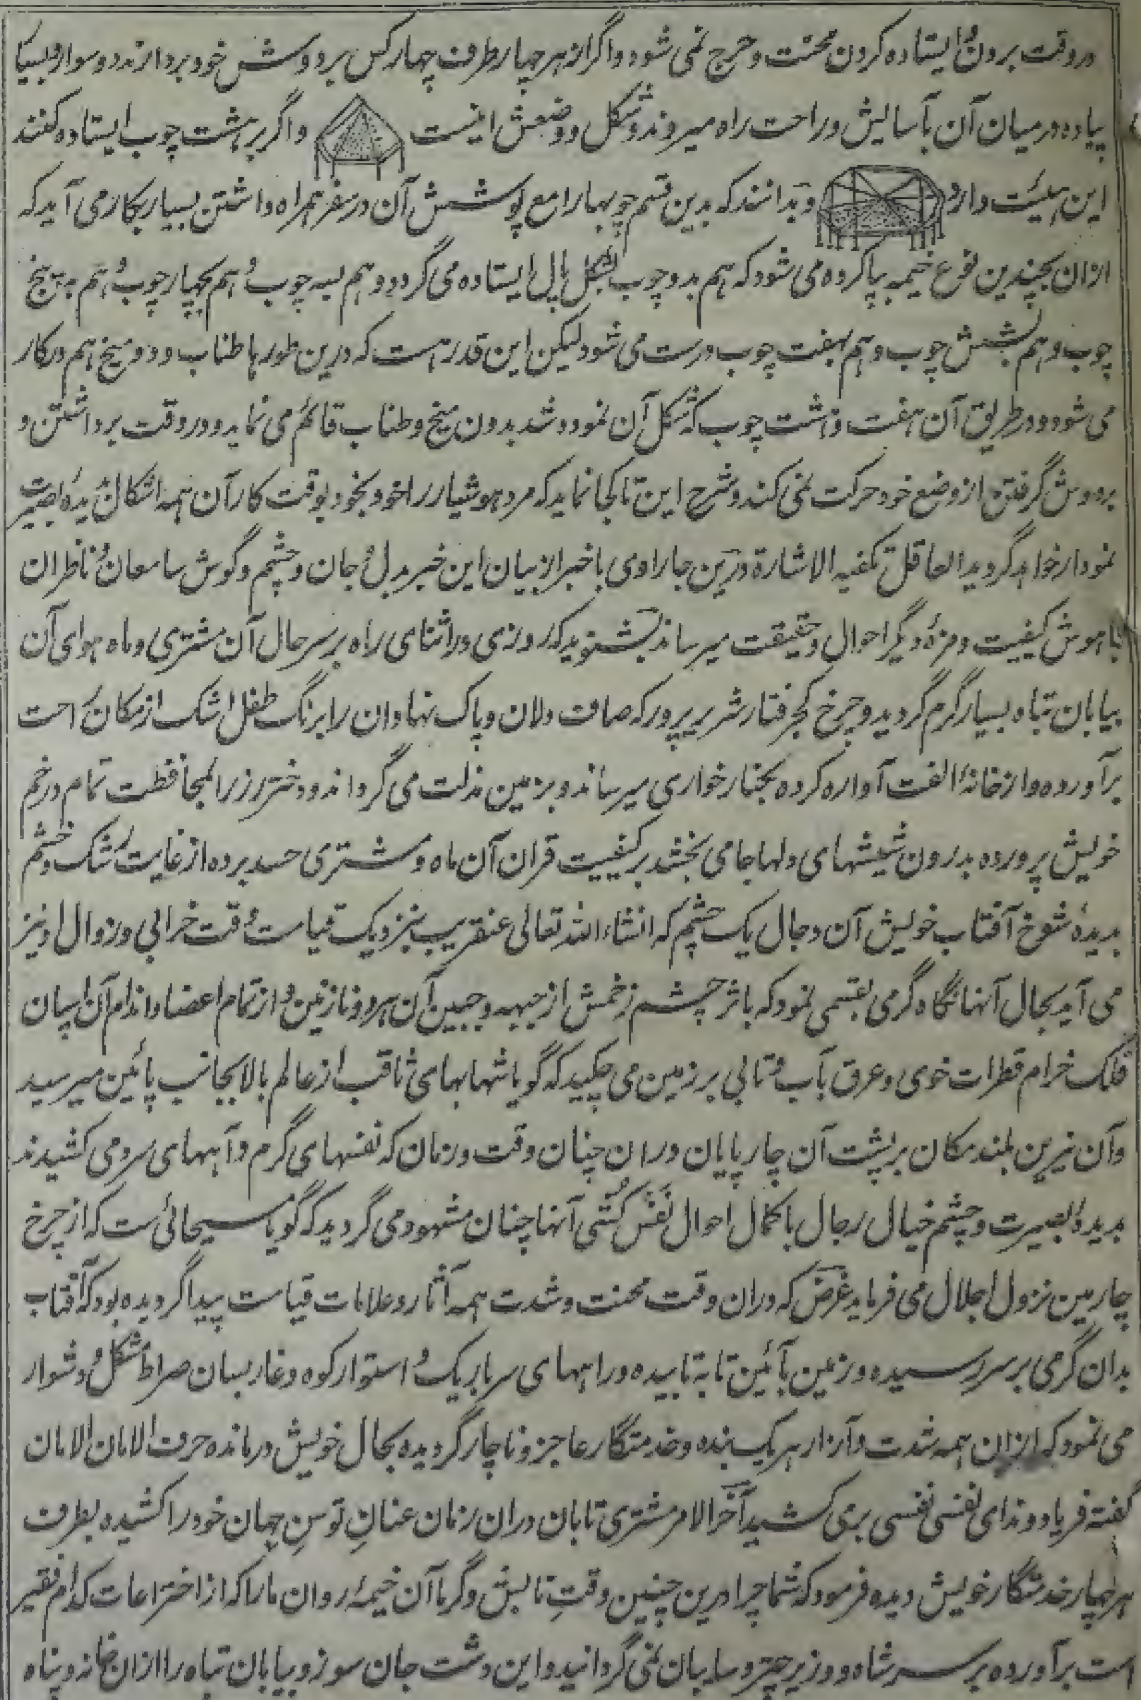 دروقت برون ایستاده کردن محنت و حرج نمی شود و اگر از هر چهار طرف چهار کس بر دوش خود بردارند دو سوار و بسیار
پیاده در میان آن بآسایش و راحت راه میروند و شکل و وضعش اینست و اگر بر هشت چوب ایستاده کنند
این هیئت دارد و بدانند که بدین قسم چوبها را مع پوشش آن در سفر همراه داشتن بسیار بکار می آید که
ازان بچندین نوع خیمه بپا کرده می شود که هم بدو چوب بشکل پال ایستاده می گردد و هم بسه چوب و هم بچهار چوب و هم به پنج
چوب و هم بشش چوب و هم بهفت چوب درست می شود لیکن این قدر هست که درین طورها طناب و دو میخ هم درکار
می شود و در طریق آن هفت و هشت چوب که شکل آن نموده شد بدون میخ و طناب قائم می نماید و در وقت برداشتن و
بدوش گرفتن از وضع خود حرکت نمی کند و شرح این تا کجا نماید که مرد هوشیار را خود بخود بوقت کار آن همه اشکال بدیدهٔ بصیرت
نمودار خواهد گردید العاقل تکفیه الاشارة درین جا راوی باخبر از بیان این خبر بدل و جان و چشم و گوش سامعان و ناظران
با هوش کیفیت و مزهٔ دیگر احوال و حقیقت میرساند بشنوید که روزی در اثنای راه بر سر حال آن مشتری و ماه هوای آن
بیابان تباه بسیار گرم گردید و چرخ کجرفتار شریر پرور که صاف دلان و پاک نهادان را برنگ طفل اشک از مکان راحت
برآورده و از خانهٔ الفت آواره کرده بخنار خواری میرساند و بزمین مذلت می گرداند و دختر رز را بمحافظت تمام در خم
خویش پرورده بدرون شیشهای دلها جا می بخشد بر کیفیت قران آن ماه و مشتری حسد برده از غایت رشک و خشم
بدیدهٔ شوخ آفتاب خویش آن دجال یک چشم که انشاء الله تعالی عنقریب بنزدیک قیامت وقت خرابی و زوال او نیز
می آید بحال آنها نگاه گرمی بقسمی نمود که باثر چشم زخمش از جبهه و جبین آن هر دو نازنین و از تمام اعضا و اندام آن اسپان
فلک خرام قطرات خوی و عرق بآب و تابی بر زمین می چکید که گویا شهابهای ثاقب از عالم بالا بجانب پائین میرسید
و آن نیرین بلند مکان بر پشت آن چارپایان دران چنان وقت و زمان که نفسهای گرم و آههای سرد می کشیدند
بدیدهٔ بصیرت و چشم خیال رجال با کمال احوال نفس کشی آنها چنان مشهود می گردید که گویا مسیحائی ست که از چرخ
چارمین نزول اجلال می فرماید غرض که دران وقت محنت و شدت همه آثار و علامات قیامت پیدا گردیده بود که آفتاب
بدان گرمی بر سر رسیده و زمین بآئین تابه تابیده و راههای سر باریک و استوار کوه و غار بسان صراط مشکل و دشوار
می نمود که ازان همه شدت و آزار هر یک بنده و خدمتگار عاجز و ناچار گردیده بحال خویش درمانده حرف الامان الامان
گفته فریاد و ندای نفسی نفسی بر می کشید آخر الامر مشتری تابان دران زمان عنان توسن جهان خود را کشیده بطرف
هر چهار خدمتگار خویش دیده فرمود که شما چرا درین چنین وقت تابش و گرما آن خیمهٔ روان ما را که از اختراعات کدام فقیر
است برآورده بر سر شاه و وزیر چتر و سایبان نمی گردانید و این دشت جان سوز و بیابان تباه را ازان خانه و پناه